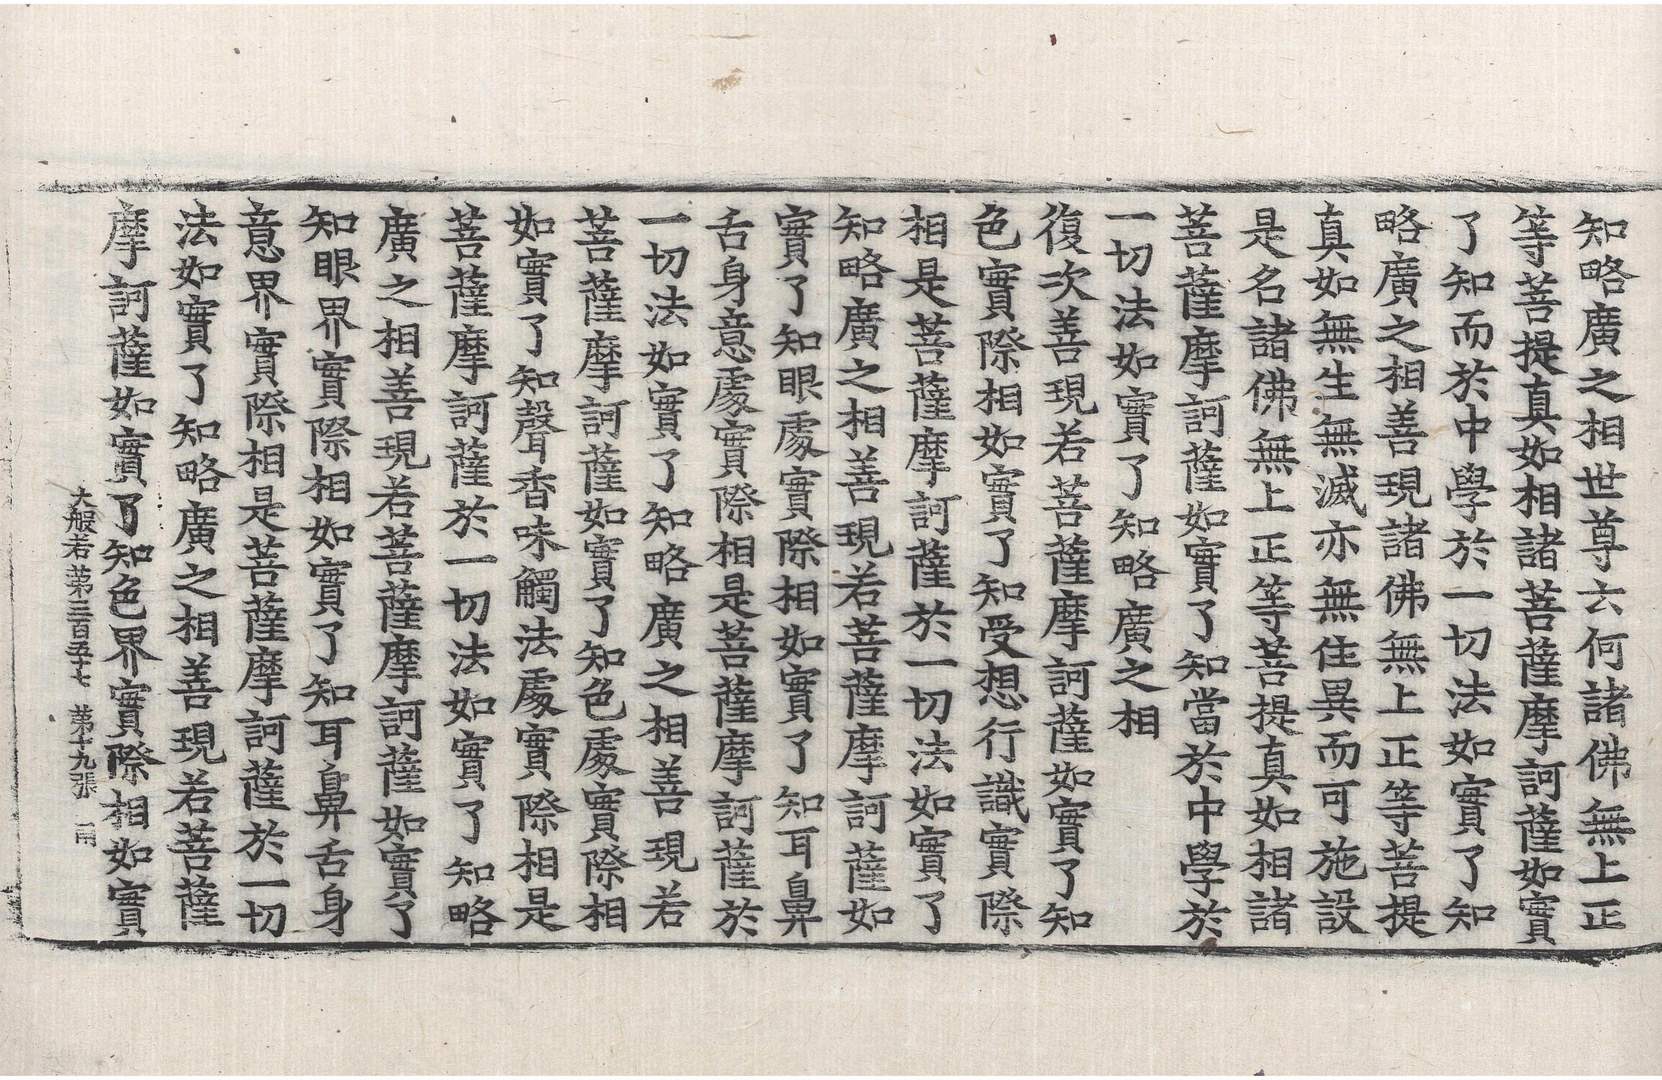 知略廣之相世尊云何諸佛無上正
等菩提真如相諸菩薩摩訶薩如實
了知而於中學於一切法如實了知
略廣之相善現諸佛無上正等菩提
真如無生無滅亦無住異而可施設
是名諸佛無上正等菩提真如相諸
菩薩摩訶薩如實了知當於中學於
一切法如實了知略廣之相
復次善現若菩薩摩訶薩如實了知
色實際相如實了知受想行識實際
相是菩薩摩訶薩於一切法如實了
知略廣之相善現若菩薩摩訶薩如
實了知眼處實際相如實了知耳鼻
舌身意處實際相是菩薩摩訶薩於
一切法如實了知略廣之相善現若
菩薩摩訶薩如實了知色處實際相
如實了知聲香味觸法處實際相是
菩薩摩訶薩於一切法如實了知略
廣之相善現若菩薩摩訶薩如實了
知眼界實際相如實了知耳鼻舌身
意界實際相是菩薩摩訶薩於一切
法如實了知略廣之相善現若菩薩
摩訶薩如實了知色界實際相如實
大般若第三百五十七 第十九張